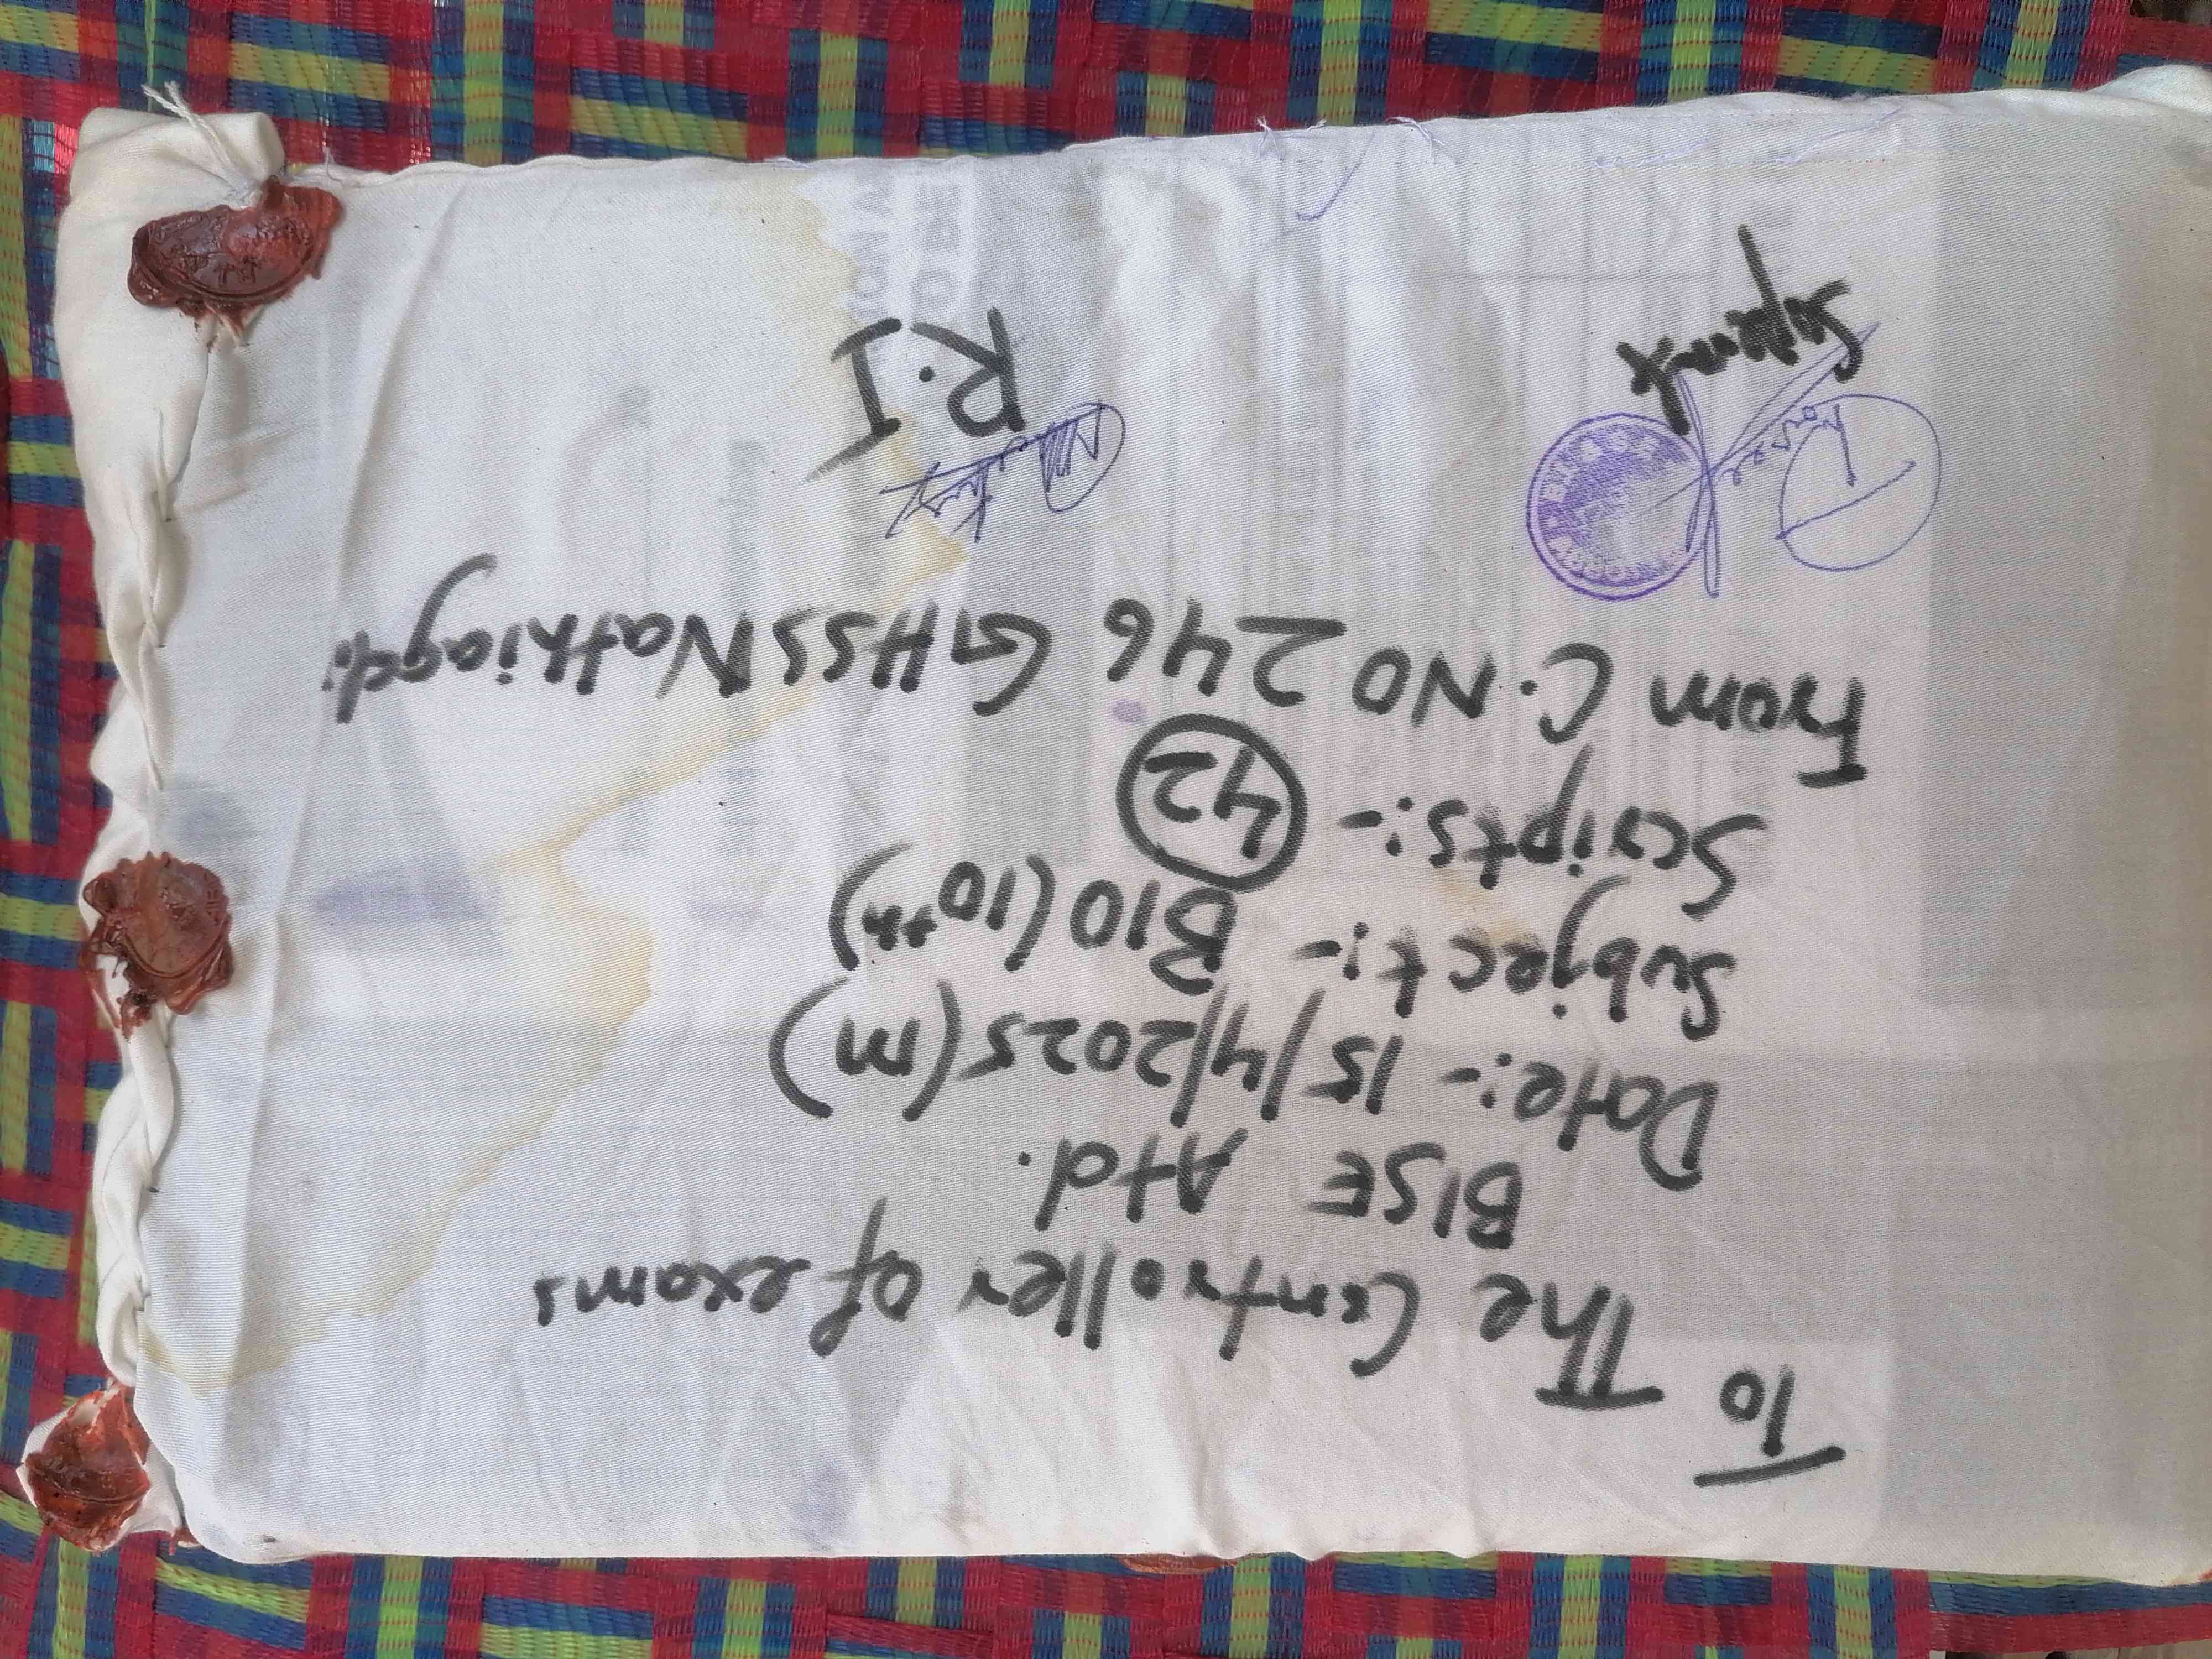 To
The Controller of exams
BISE Atd.
Date:- 15/4/2025 (M)
Subject:- BIO (10th)
Scripts:- 42
From C.NO 246 GHSS Nathiagali
R.I